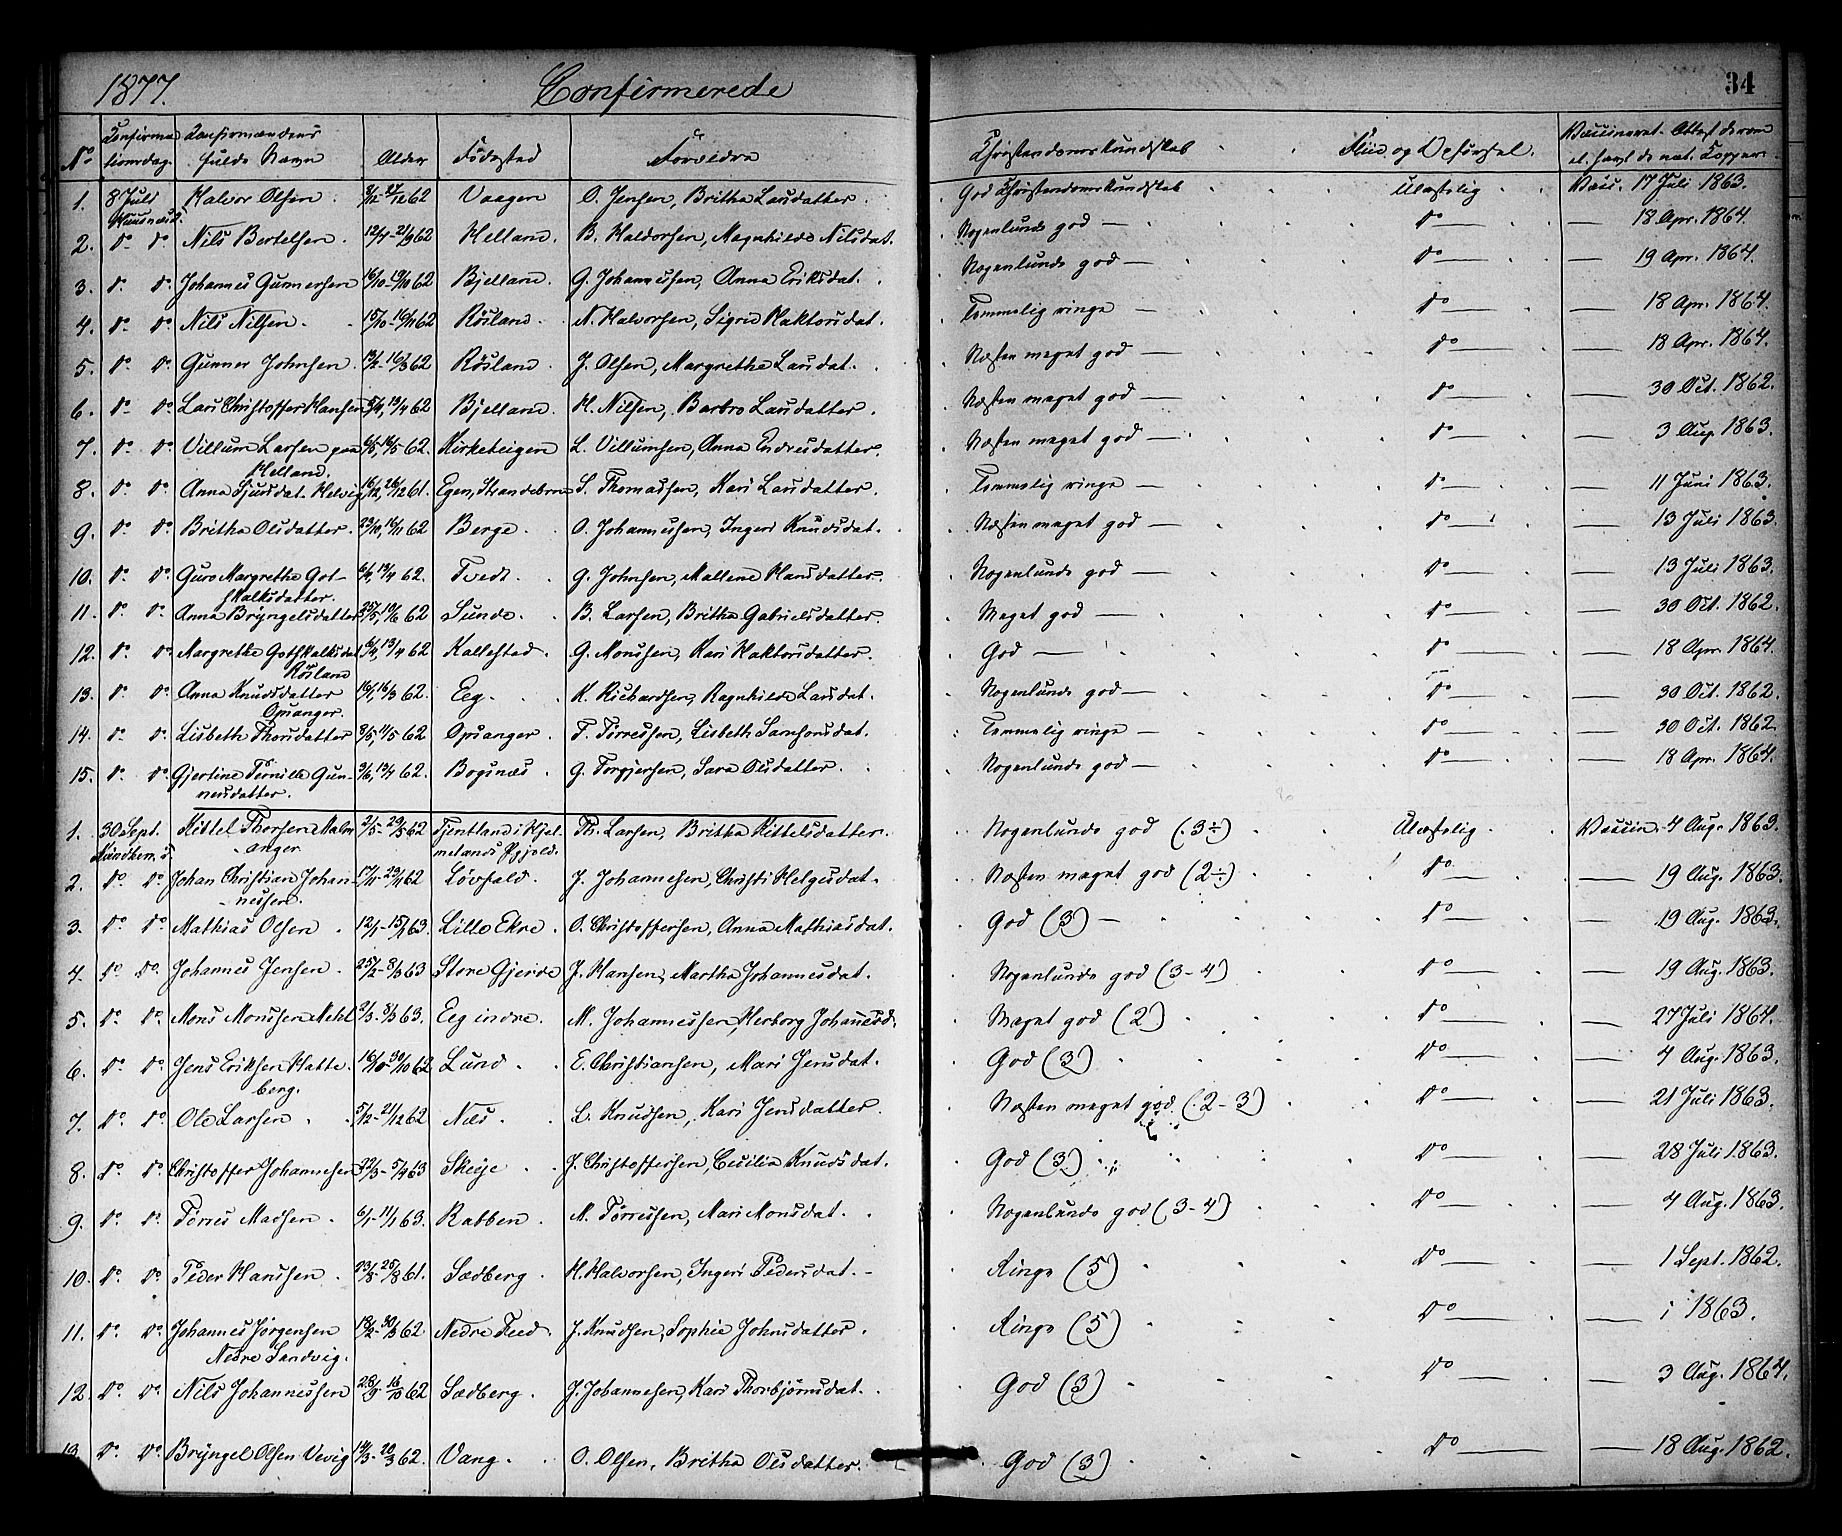 1877. Confirmerede 34
No Confirma- Konfirmandens Alder Fødested Forældre Christendomskundskab Flid og Opførsel. Vaccineret. Attest derom
tionsdag. fulde Navn el. havt de nat. Kopper.
1. 8 Juli Halvor Olsen. 62 Vaagen O. Jensen, Britha Larsdatter. God Christendomskundskab Ulastelig Vacc. 17 Juli 1863.
2. do do Nils Bertelsen. 12/4-21/9 62 Helland. B. Haldorsen, Magnhilde Nilsdat. Nogenlunde god — do — 18 Apr. 1864.
3. do do Johannes Gunnersen 16/10-19/10 62 Bjelland. G. Johannessen, Anna Eriksdat. Nogenlunde god — do — 19 Apr. 1864.
4. do do Nils Nilsen. 15/10-16/11 62 Røsland. N. Halvorsen, Sigrid Haktorsdat. Temmelig ringe — do — 18 Apr. 1864.
5. do do Gunner Johnsen. 13/2-16/3 62 Røsland. J. Olsen, Margrethe Larsdat. Næsten meget god — do — 18 Apr. 1864.
6. do do Lars Christoffer Hansen 5/4, 13/4 62 Bjelland. H. Nilsen, Barbro Larsdatter. Næsten meget god — do — 30 Oct. 1862.
7. do do Villum Larsen paa 6/5, 16/5 62. Kirketeigen L. Villumsen, Anna Endresdatter. Næsten meget god — do — 3 Aug. 1863.
Helland.
8. do do Anna Sjursdat. Helvig 16/12, 26/12 61. Egen, Strandebrm S. Thomassen, Kari Larsdatter. Temmelig ringe — do — 11 Juni 1863.
9. do do Britha Olsdatter. 62 Berge. O. Johannessen, Ingeri Knudsdat. Næsten meget god — do — 13 Juli 1863.
10. do do Guro Margrethe Got- 6/4, 13/4 62. Tvedt. G. Johnsen, Mallene Hansdatter. Nogenlunde god — do — 13 Juli 1863.
skalksdatter.
11. do do Anna Bryngelsdatter 25/5, 19/6 62 Sunde. B. Larsen, Britha Gabrielsdatter. Meget god — do — 30 Oct. 1862.
12. do do Margrethe Gothskalksdat 6/4, 13/4 62 Kallestad. G. Monssen, Kari Haktorsdatter. God — do — 18 Apr. 1864
Røsland
13. do do Anna Knudsdatter 62. Eeg. K. Richardsen, Ragnhilde Larsdat. Nogenlunde god — do — 30 Oct. 1862.
Opsanger.
14. do do Lisbeth Thorsdatter 8/5, 11/5 62 Opsanger. T. Tørressen, Lisbeth Samsonsdat. Temmelig ringe — do — 30 Oct. 1862
15. do do Gjertine Pernille Gun- 62. Bogsnæs. G. Torgjersen, Sara Olsdatter. Nogenlunde god — do — 18 Apr. 1864.
nersdatter.
1. 30 Sept. Kittel Thorsen Malm 2/5-29/5 62 Tjentland i Hjel- Th. Larsen, Britha Kittelsdatter. Nogenlunde god (3÷) Ulastelig. Vaccin. 4 Aug. 1863.
anger melands Pgjeld.
2. do do Johan Christian Johan- 17/11-23/11 62 Løvfald. J. Johannesen, Christi Helgesdat. Næsten meget god (2÷) do — 19 Aug. 1863.
nessen.
3. do do Mathias Olsen. 63. Lille Ekre. O. Christoffersen, Anna Mathiasdat. God (3) — do — 19 Aug. 1863.
4. do do Johannes Jensen. 25/2-8/3 63 Store Gjerde J. Hansen, Martha Johannesdat. Nogenlunde god (3-4) do — 19 Aug. 1863.
5. do do Mons Monssen Mehl 2/3-8/3 63. Eeg indre. M. Johannessen, Herborg Johannesd. Meget god (2) do — 27 Juli 1864.
6. do do Jens Eriksen Hatte- 16/10-30/10 62 Lund. E. Christiansen, Mari Jensdat. God (3) do — 4 Aug. 1863.
berg.
7. do do Ole Larsen 5/12-21/12 62 Nils. L. Knudsen, Kari Jensdatter. Næsten meget god. (2-3) do — 21 Juli 1863.
8. do do Christoffer Johannesen 22/3-5/4 63 Skeije J. Christoffersen, Cecilia Knudsdat. God (3) do — 28 Juli 1863.
9. do do Tørres Madsen. 6/1-11/1 63. Rabben. M. Tørressen, Mari Monsdat. Nogenlunde god (3-4) do — 4 Aug. 1863.
10. do do Peder Hanssen. 23/5-25/8 61. Sædberg. H. Halvorsen, Ingeri Pedersdat. Ringe (5) do — 1 Sept. 1862.
11. do do Johannes Jørgensen 18/2-30/3 62 Nedre Feed. J. Knudsen, Sophie Johnsdatter. Ringe (5) do — i 1863.
Nedre Sandvig.
12. do do Nils Johannessen 28/9 16/10 62 Sædberg. J. Johannesen, Kari Thorbjørnsdat. God (3) do — 3 Aug. 1864.
13. do do Bryngel Olsen Vevig 14/3-20/3 62. Vang. O. Olsen, Britha Olsdatter. God (3) do — 18 Aug. 1862.